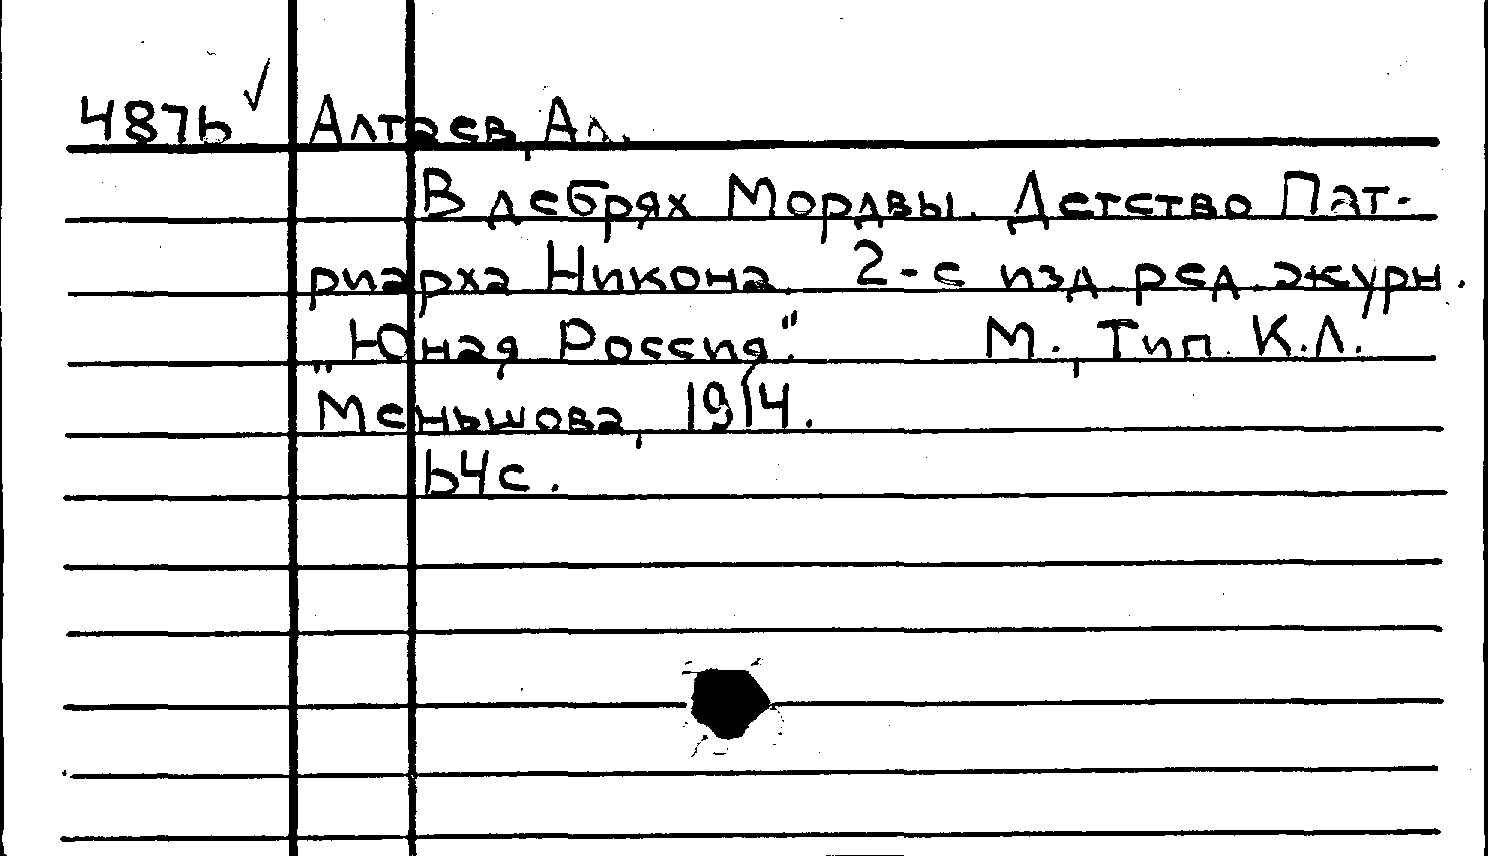 4876 ✓ Алтаев, Ал.
В дебрях Мордвы. Детство Пат-
риарха Никона. 2-е изд. ред. журн.
"Юная Россия". М., Тип. К.Л.
Меньшова, 1914.
64с.